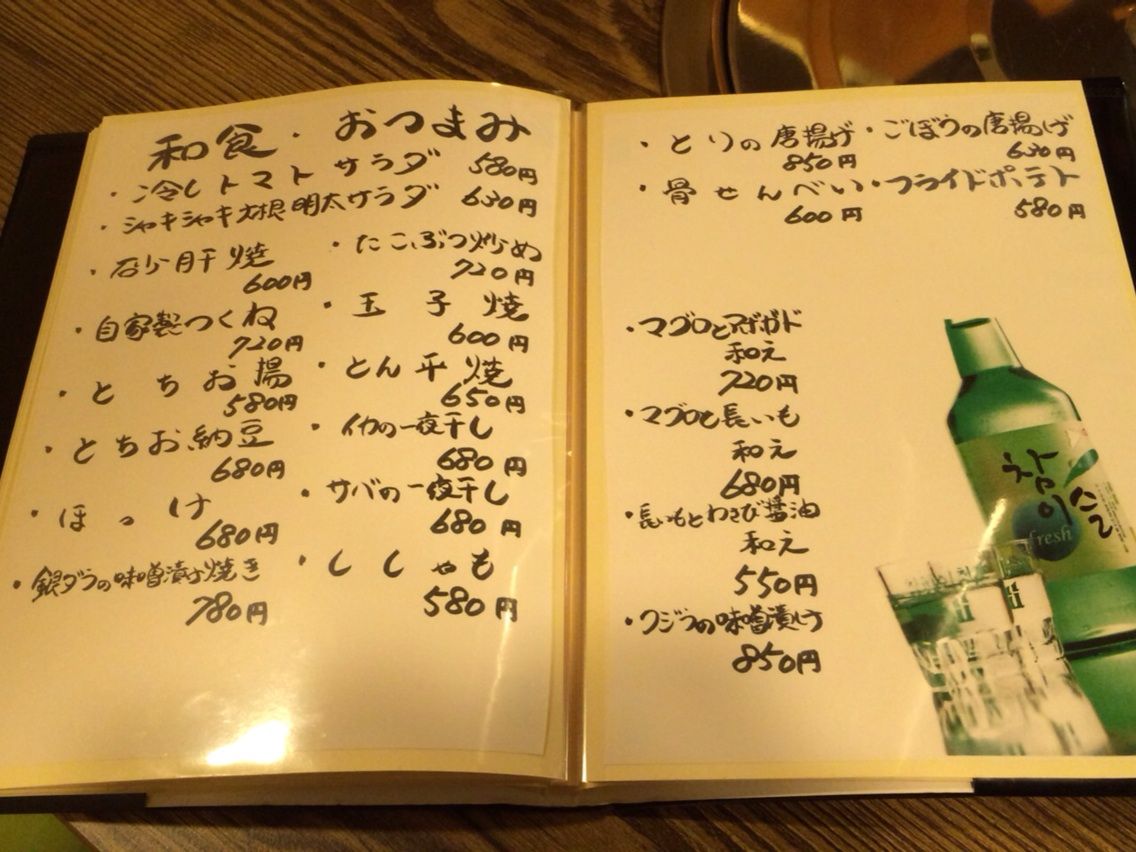 和食・おつまみ
・冷しトマトサラダ 580円
・シャキシャキ大根明太サラダ 630円
・砂肝焼 ・たこぶつ炒め
600円 720円
・自家製つくね ・玉子焼
720円 600円
・とちお揚 ・とん平焼
580円 650円
・とちお納豆 ・イカの一夜干し
680円 680円
・ほっけ ・サバの一夜干し
680円 680円
・銀ダラの味噌漬け焼き ・ししゃも
780円 580円
・とりの唐揚げ ・ごぼうの唐揚げ
850円 630円
・骨せんべい ・フライドポテト
600円 580円
・マグロとアボガド
和え
720円
・マグロと長いも
和え
680円
・長いもとわさび醤油
和え
550円
・クジラの味噌漬け
850円
참이슬
fresh